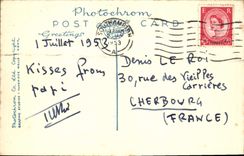 Photochrom
POST CARD
Greetings
1 Juillet 1953
Kisses from
papi
Denis LE ROI
30, rue des Vieilles
Carrières
CHERBOURG
(FRANCE)